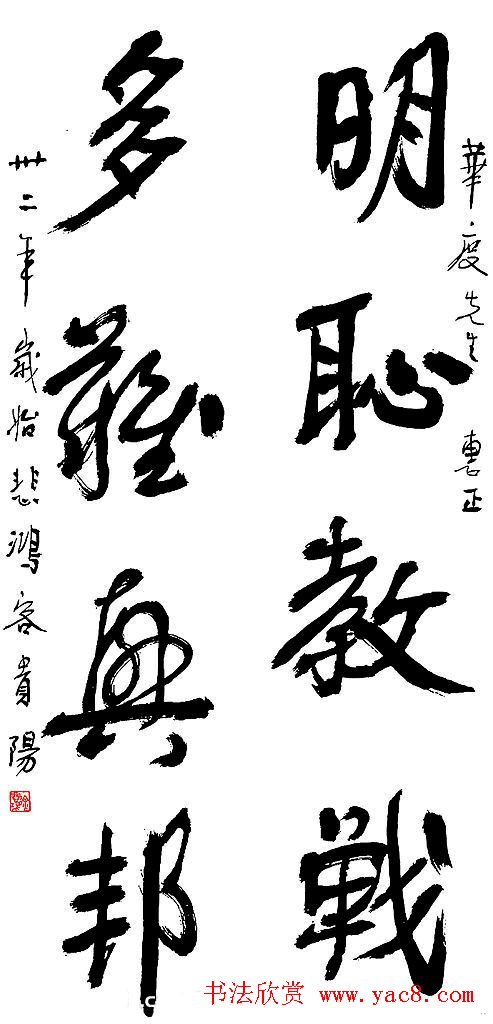 華度先生 惠正
明恥教戰
多難興邦
卅二年歲始悲鴻客貴陽
书法欣赏 www.yac8.com